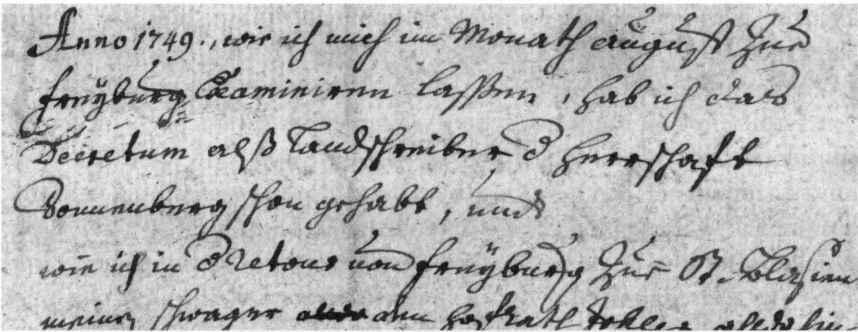 Anno 1749., wie ich mich im Monath august Zue
freyburg Examiniren lassen, hab ich das
Decretum alß Landschreiber d herrschafft
Sonnenberg schon gehabt, und
wie ich in d retour von freyburg Zue St. Blasien
meinen schwager den hoffrath